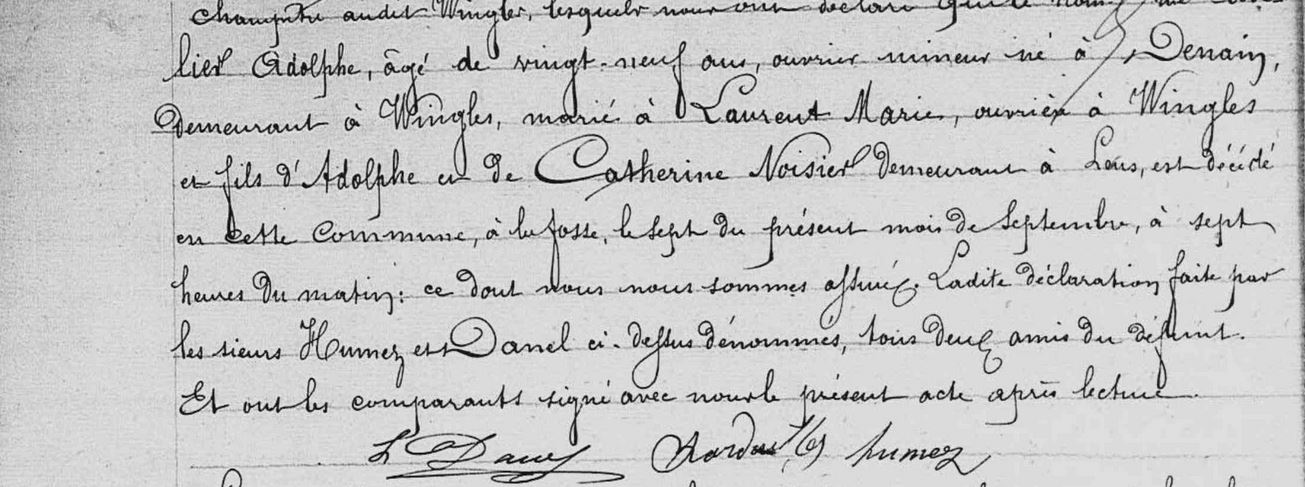 champêtre audit Wingles, lesquels nous ont déclaré que le nommé
lier Adolphe, âgé de vingt-neuf ans, ouvrier mineur né à Denain,
demeurant à Wingles, marié à Laurent Marie, ouvrière à Wingles
et fils d'Adolphe et de Catherine Noisier demeurant à Lens, est décédé
en cette commune, à la fosse, le sept du présent mois de Septembre, à sept
heures du matin: ce dont nous nous sommes assuré. Ladite déclaration faite par
les sieurs Humez et Danel ci-dessus dénommés, tous deux amis du défunt.
Et ont les comparants signé avec nous le présent acte après lecture.
L Danel humez